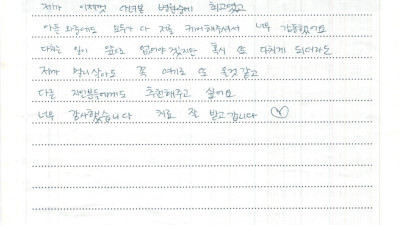 제가 이제껏 다녀본 병원중에 최고였고
아픈 와중에도 모두가 다 저를 케어해주셔서 너무 감동했어요
다치는 일이 또다시 없어야 겠지만 혹시 또 다치게 되더라도
제가 멀리살아도 꼭 여기로 또 올것 같고
다른 지인분들에게도 추천해주고 싶어요
너무 감사했습니다 치료 잘 받고갑니다 ♡